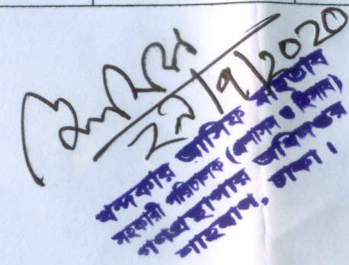 /9/2020
খন্দকার আসিফ মাহতাব
সহকারী পরিচালক (প্রশাসন ও হিসাব)
গণগ্রন্থাগার অধিদপ্তর
শাহবাগ, ঢাকা।